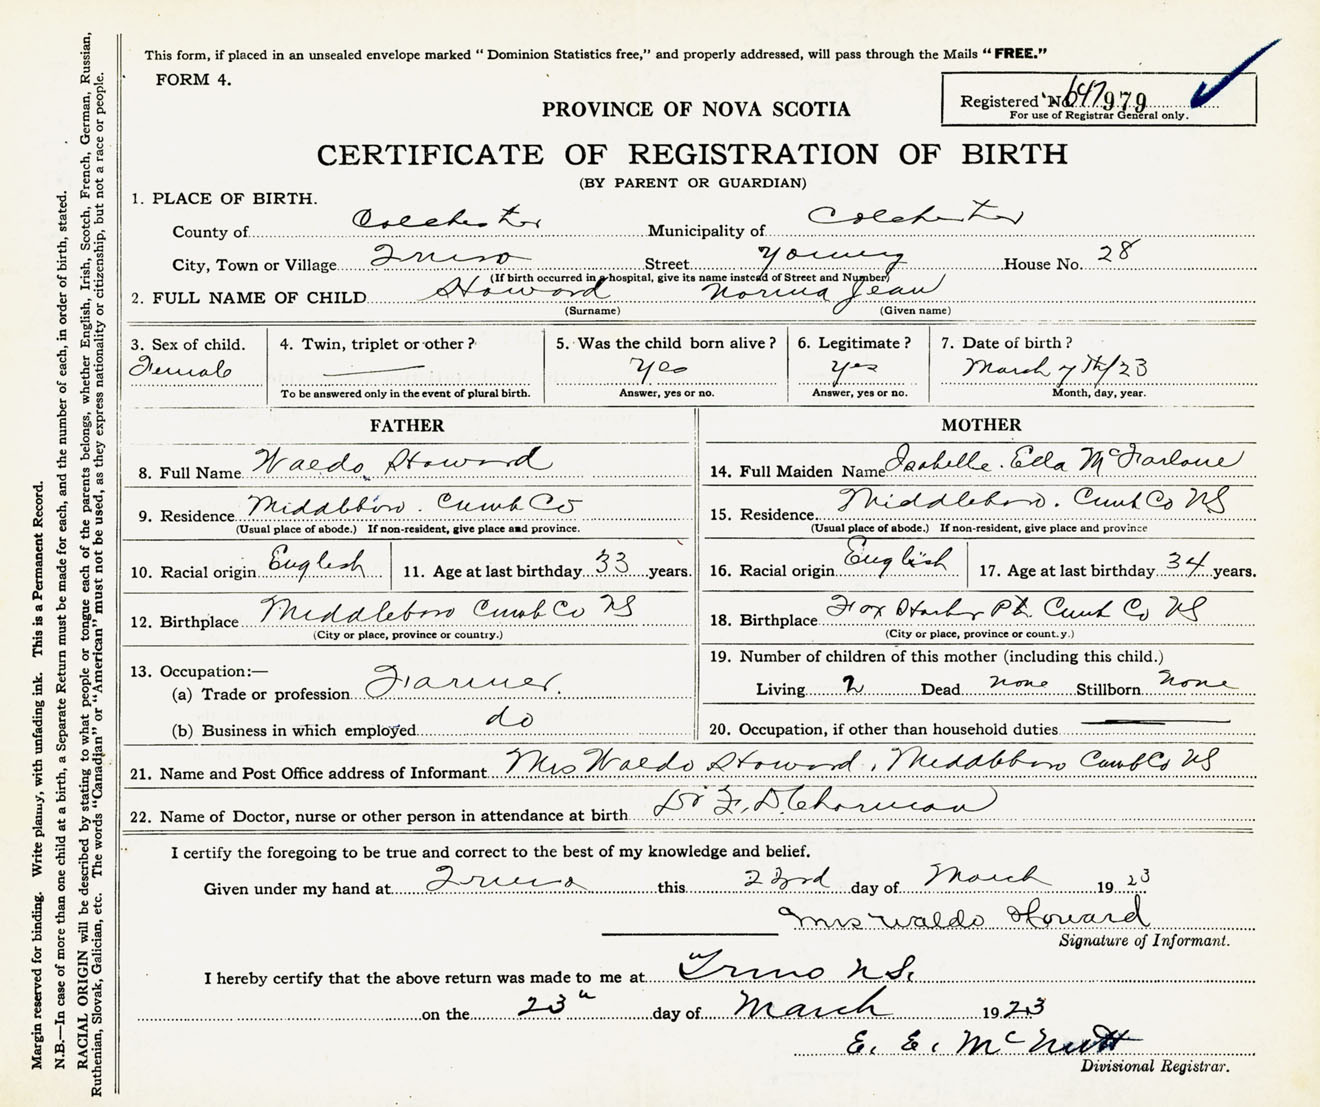 This form, if placed in an unsealed envelope marked “ Dominion Statistics free,” and properly addressed, will pass through the Mails “ FREE.”
FORM 4.
Registered No. 647979
For use of Registrar General only.
PROVINCE OF NOVA SCOTIA
CERTIFICATE OF REGISTRATION OF BIRTH
(BY PARENT OR GUARDIAN)
1. PLACE OF BIRTH.
County of Colchester Municipality of Colchester
City, Town or Village Truro Street Young House No. 28
(If birth occurred in a hospital, give its name instead of Street and Number)
2. FULL NAME OF CHILD Howard Norma Jean
(Surname) (Given name)
3. Sex of child. 4. Twin, triplet or other ? 5. Was the child born alive ? 6. Legitimate ? 7. Date of birth ?
Female Yes Yes March 7th/23
To be answered only in the event of plural birth. Answer, yes or no. Answer, yes or no. Month, day, year.
FATHER MOTHER
8. Full Name Waldo Howard 14. Full Maiden Name Isabelle Ella McFarlane
9. Residence Middleboro. Cumb Co 15. Residence. Middleboro. Cumb Co NS
(Usual place of abode.) If non-resident, give place and province. (Usual place of abode.) If non-resident, give place and province
10. Racial origin English 11. Age at last birthday 33 years. 16. Racial origin English 17. Age at last birthday 34 years.
12. Birthplace Middleboro Cumb Co NS 18. Birthplace Fox Harbor Pt. Cumb Co NS
(City or place, province or country.) (City or place, province or count.y.)
13. Occupation:— 19. Number of children of this mother (including this child.)
(a) Trade or profession Farmer. Living 2 Dead none Stillborn none
(b) Business in which employed do 20. Occupation, if other than household duties
21. Name and Post Office address of Informant Mrs Waldo Howard, Middleboro Cumb Co NS
22. Name of Doctor, nurse or other person in attendance at birth Dr F. D. Charman
I certify the foregoing to be true and correct to the best of my knowledge and belief.
Given under my hand at Truro this 23rd day of March 1923
Mrs Waldo Howard
Signature of Informant.
I hereby certify that the above return was made to me at Truro N.S.
on the 23" day of March 1923
E. E. McNutt
Divisional Registrar.
Margin reserved for binding. Write plainly, with unfading ink. This is a Permanent Record.
N.B.—In case of more than one child at a birth, a Separate Return must be made for each, and the number of each, in order of birth, stated.
RACIAL ORIGIN will be described by stating to what people or tongue each of the parents belongs, whether English, Irish, Scotch, French, German, Russian,
Ruthenian, Slovak, Galician, etc. The words “Canadian” or “American” must not be used, as they express nationality or citizenship, but not a race or people.